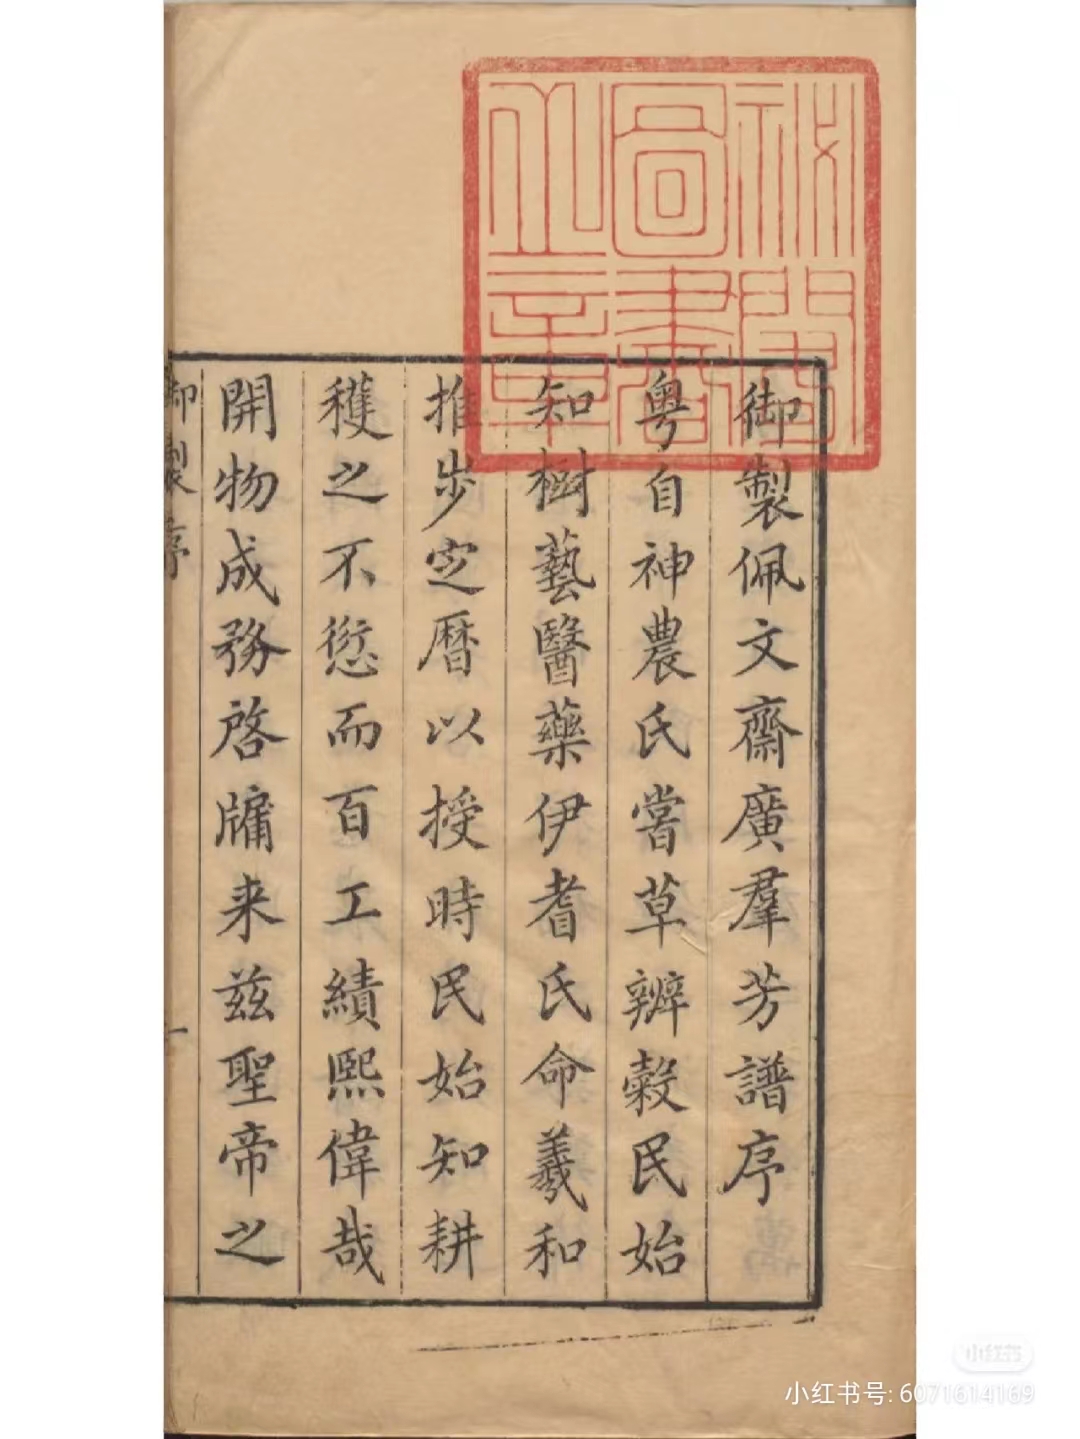 御製佩文齋廣羣芳譜序
粤自神農氏嘗草辨穀民始
知樹藝醫藥伊耆氏命羲和
推步定曆以授時民始知耕
穫之不愆而百工績熙偉哉
開物成務啓牖来兹聖帝之
御製序
一
秘閣
圖書
之章
小红书
小红书号: 6071614169